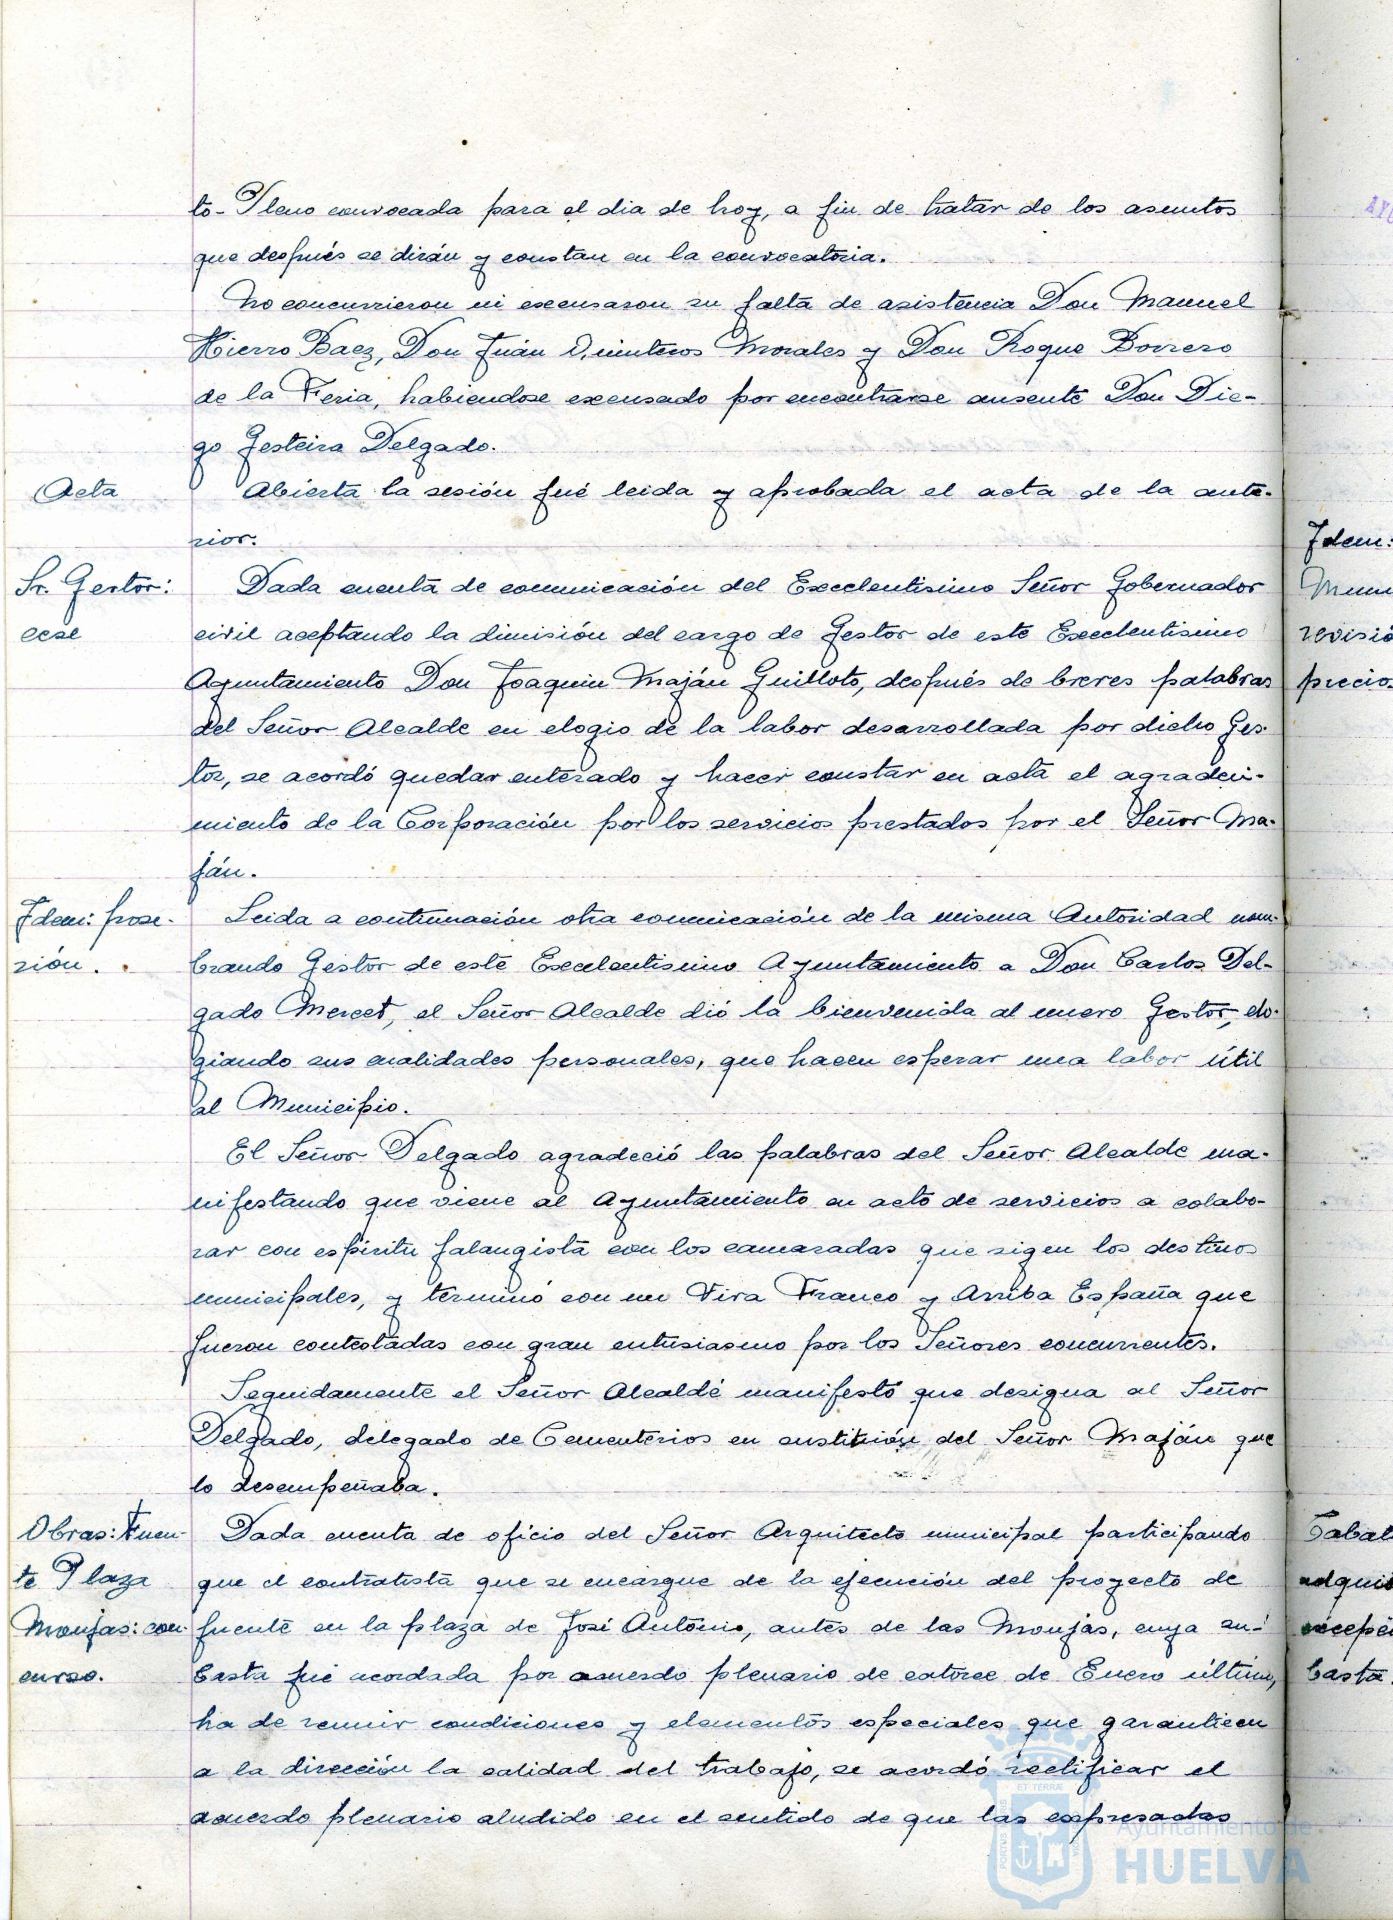 to-Pleno convocada para el dia de hoy, a fin de tratar de los asuntos
que después se dirán y constan en la convocatoria.
No concurrieron ni excusaron su falta de asistencia Don Manuel
Hierro Baez, Don Juán Quinteros Morales y Don Roque Borrero
de la Feria, habiendose excusado por encontrarse ausente Don Die-
go Gesteira Delgado.
Acta
Abierta la sesión fué leida y aprobada el acta de la ante-
rior.
Sr. Gestor:
cese
Dada cuenta de comunicación del Excelentisimo Señor Gobernador
civil aceptando la dimisión del cargo de Gestor de este Excelentisimo
Ayuntamiento Don Joaquin Maján Guilloto, después de breves palabras
del Señor Alcalde en elogio de la labor desarrollada por dicho Ges-
tor, se acordó quedar enterado y hacer constar en acta el agradeci-
miento de la Corporación por los servicios prestados por el Señor Ma-
ján.
Idem: pose-
sión.
Leida a continuación otra comunicación de la misma Autoridad nom-
brando Gestor de este Excelentisimo Ayuntamiento a Don Carlos Del-
gado Mercet, el Señor Alcalde dió la bienvenida al nuevo Gestor, elo-
giando sus cualidades personales, que hacen esperar una labor útil
al Municipio.
El Señor Delgado agradeció las palabras del Señor Alcalde ma-
nifestando que viene al Ayuntamiento en acto de servicios a colabo-
rar con espiritu falangista con los camaradas que rigen los destinos
municipales, y terminó con un Viva Franco y Arriba España que
fueron contestadas con gran entusiasmo por los Señores concurrentes.
Seguidamente el Señor Alcalde manifestó que designa al Señor
Delgado, delegado de Cementerios en sustitución del Señor Maján que
lo desempeñaba.
Obras: Fuen-
te Plaza
Monjas: con-
curso.
Dada cuenta de oficio del Señor Arquitecto municipal participando
que el contratista que se encargue de la ejecución del proyecto de
fuente en la plaza de José António, antes de las Monjas, cuya su-
basta fué acordada por acuerdo plenario de catorce de Enero último,
ha de reunir condiciones y elementos especiales que garanticen
a la dirección la calidad del trabajo, se acordó rectificar el
acuerdo plenario aludido en el sentido de que las expresadas
Idem:
revisió
precio
adquis
basta.
PORTUS
ET TERRAE
Ayuntamiento de
HUELVA